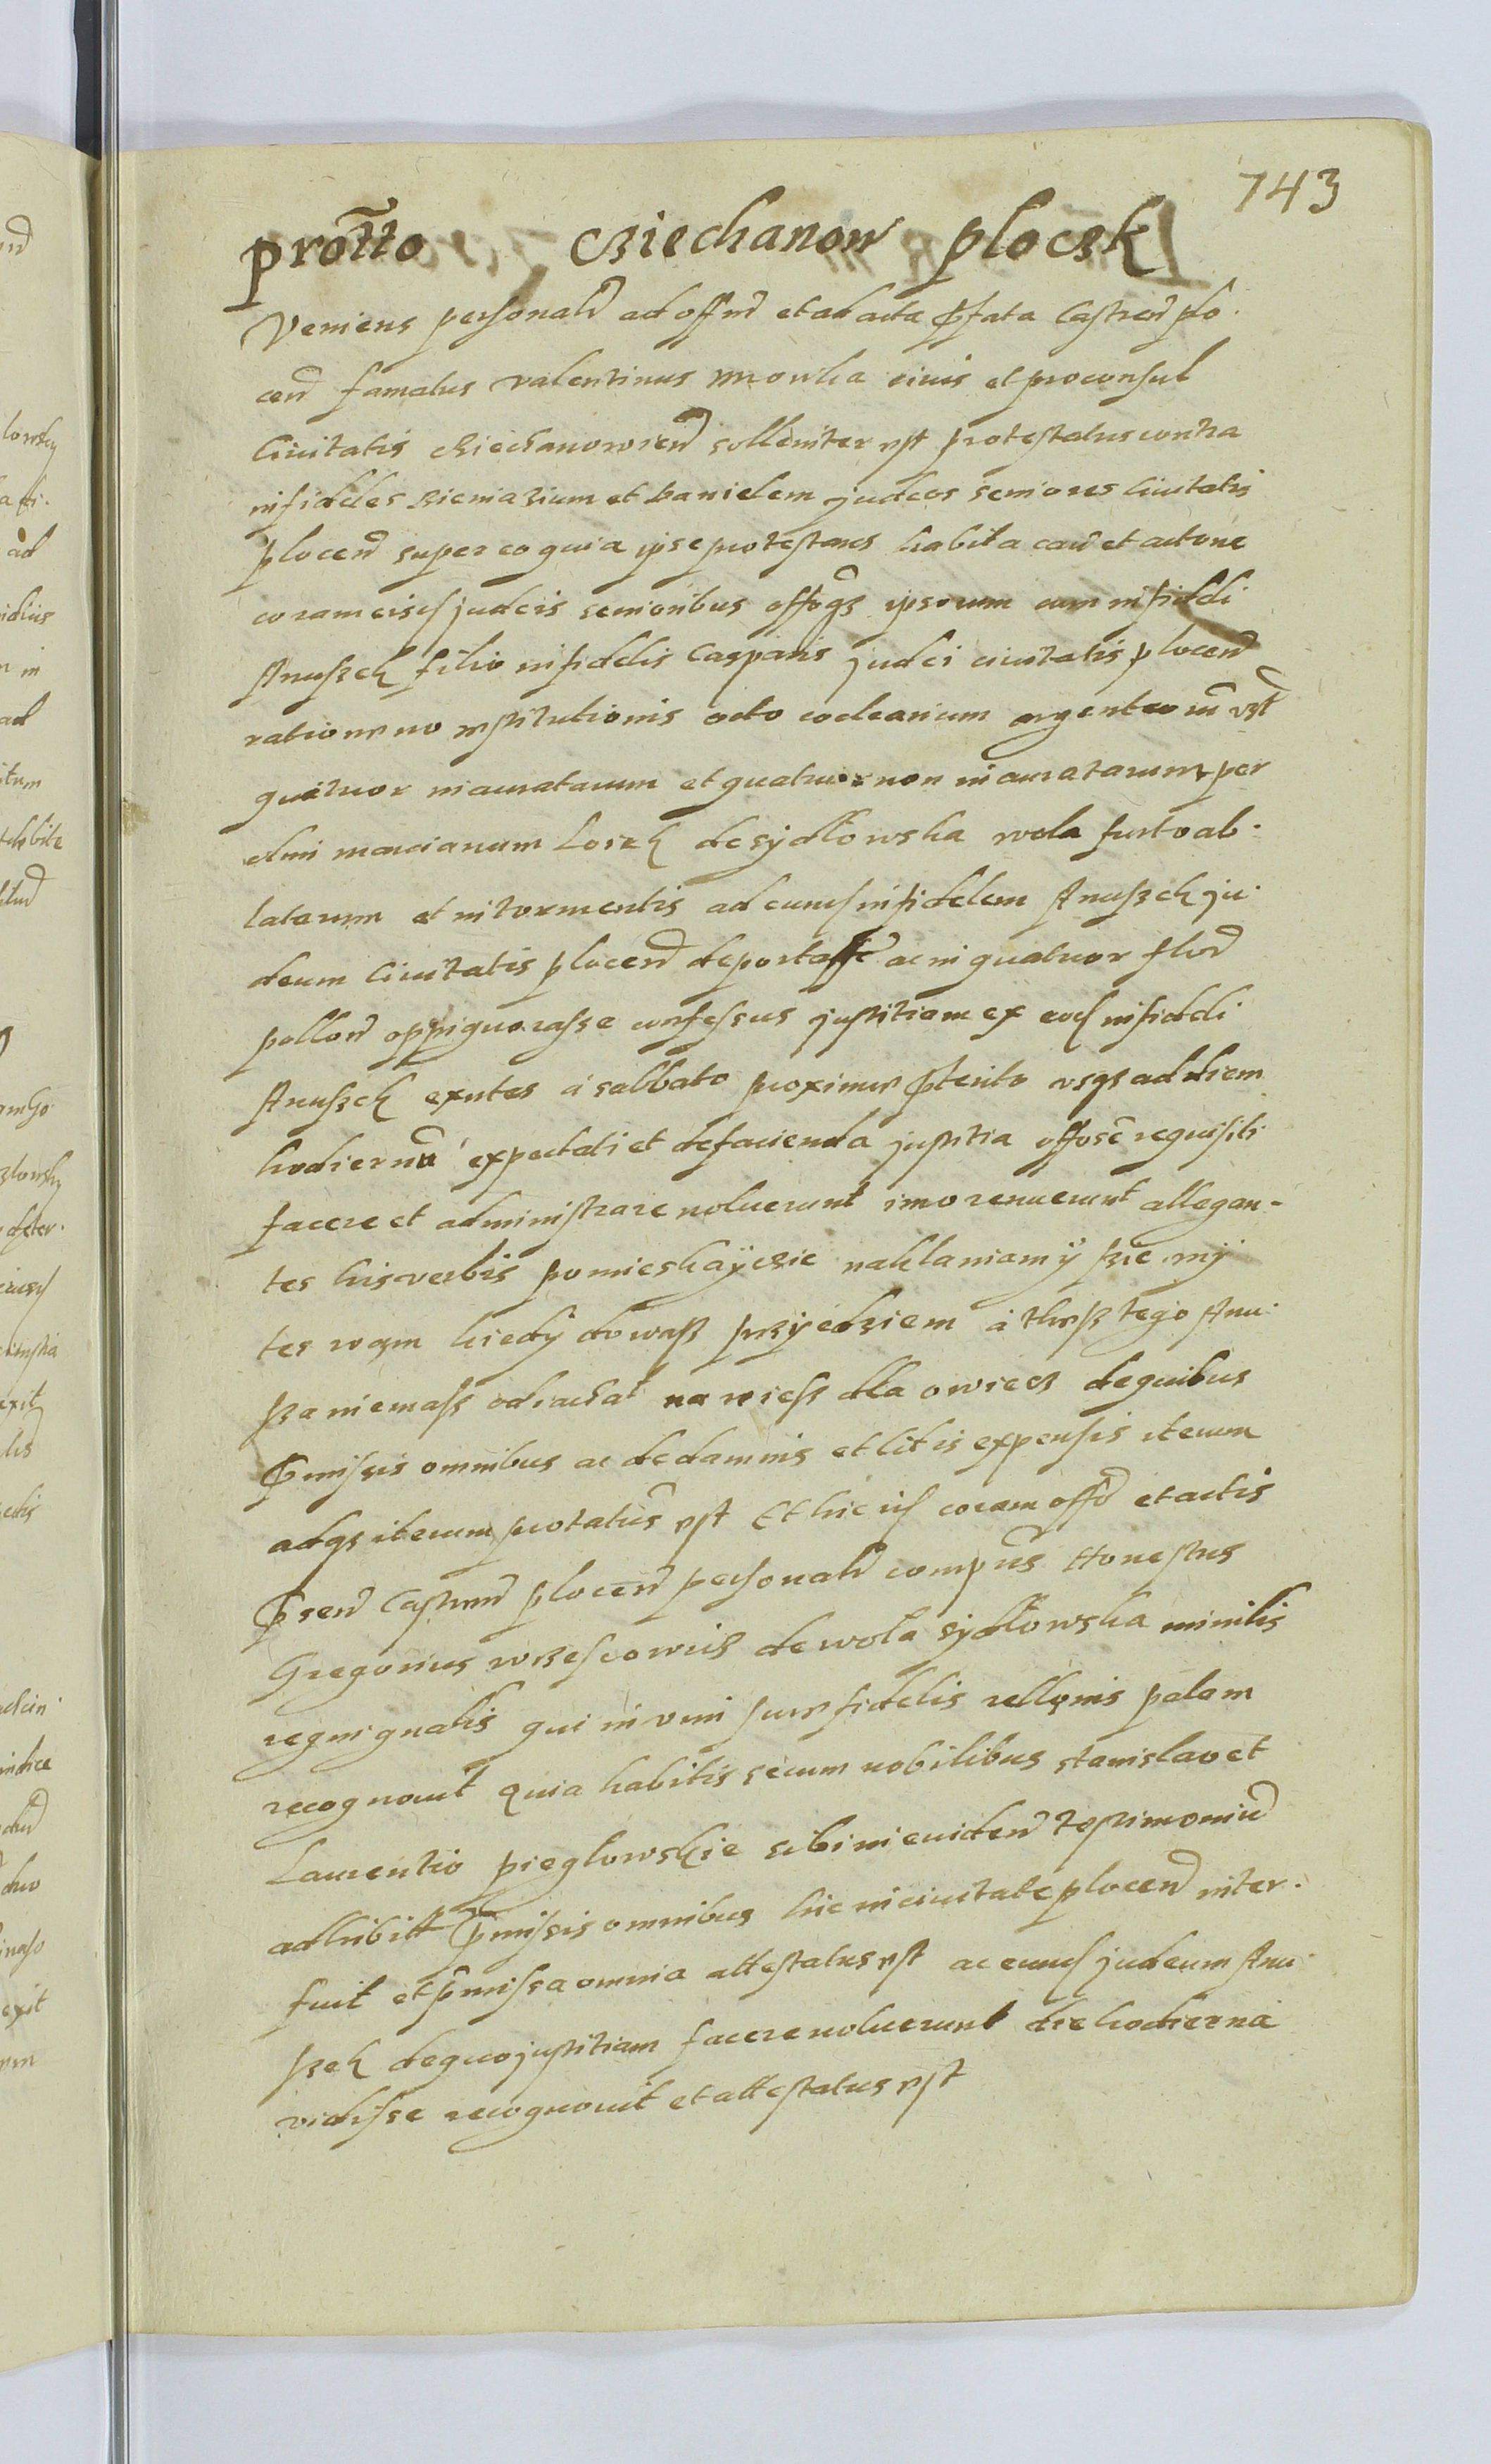 743
protto Cziechanow ploczk
Veniens personalr ad offm et ad acta pfata Castren plo-
cen famatus Valentinus Mowka civis et proconsul
Civitatis Cziechanowien solleniter est protestatus contra
infideles et Danielem judeos seniores Civitatis
plocen super eo quia ipse protestans habita cau et actione
coram eisd judeis senioribus offoqz ipsorum cum infideli
Anuszek filio infidelis Casparis judei civitatis plocen
ratione no restitutionis octo coclearium argenteoru vzt
quatuor inauratarum et quatuor non inauratarum per
olim Marcianum Losek de sydlowska wola furto ab-
latarum et in tormentis ad eund infidelem Anuszek ju-
deum Civitatis plocen deportasse ac in quatuor flor
pollon oppignorasse confessus justitiam ex eod infideli
Anuszek exntes a sabbato proxime pterito usqz ad diem
hodiernu expectati et de facienda justitia offose requisiti
facere et administrare noluerunt imo renuerunt allegan-
tes his verbis pomieskayczie naklaniamy szie my
tez wam kiedy do wasz przyedziem a thesz tego Anu-
szka niemasz odiachal na wiesz dla owiecz de quibus
pmissis omnibus ac de damnis et litis expensis iterum
adqz iterum protatus est Et hic id coram offo et actis
psen Castren plocen personalr compns Honestus
Gregorius wrzescowicz de wola sydlowska minilis
regni gnalis qui in vim sue fidelis rellonis palam
recognovit Quia habitis secum nobilibus Stanislao et
Laurentio pieglowskie sibi in eviden testimoniu
adhibitt pmissis omnibus hic in civitate plocen inter-
fuit et pmissa omnia attestatus est ac eund judeum Anu-
szek de quo justitiam facere noluerunt die hodierna
vidisse recognovit et attestatus est